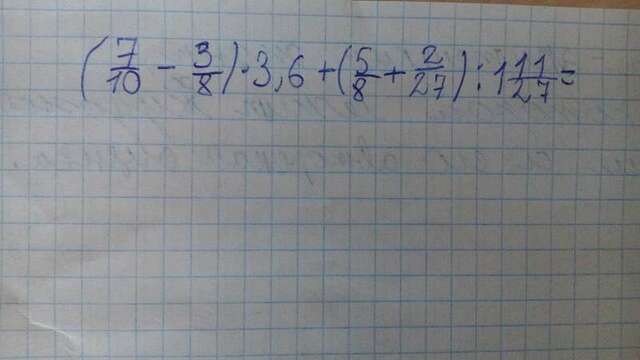 (7/10 - 3/8) · 3,6 + (5/8 + 2/27) : 1 11/27 =